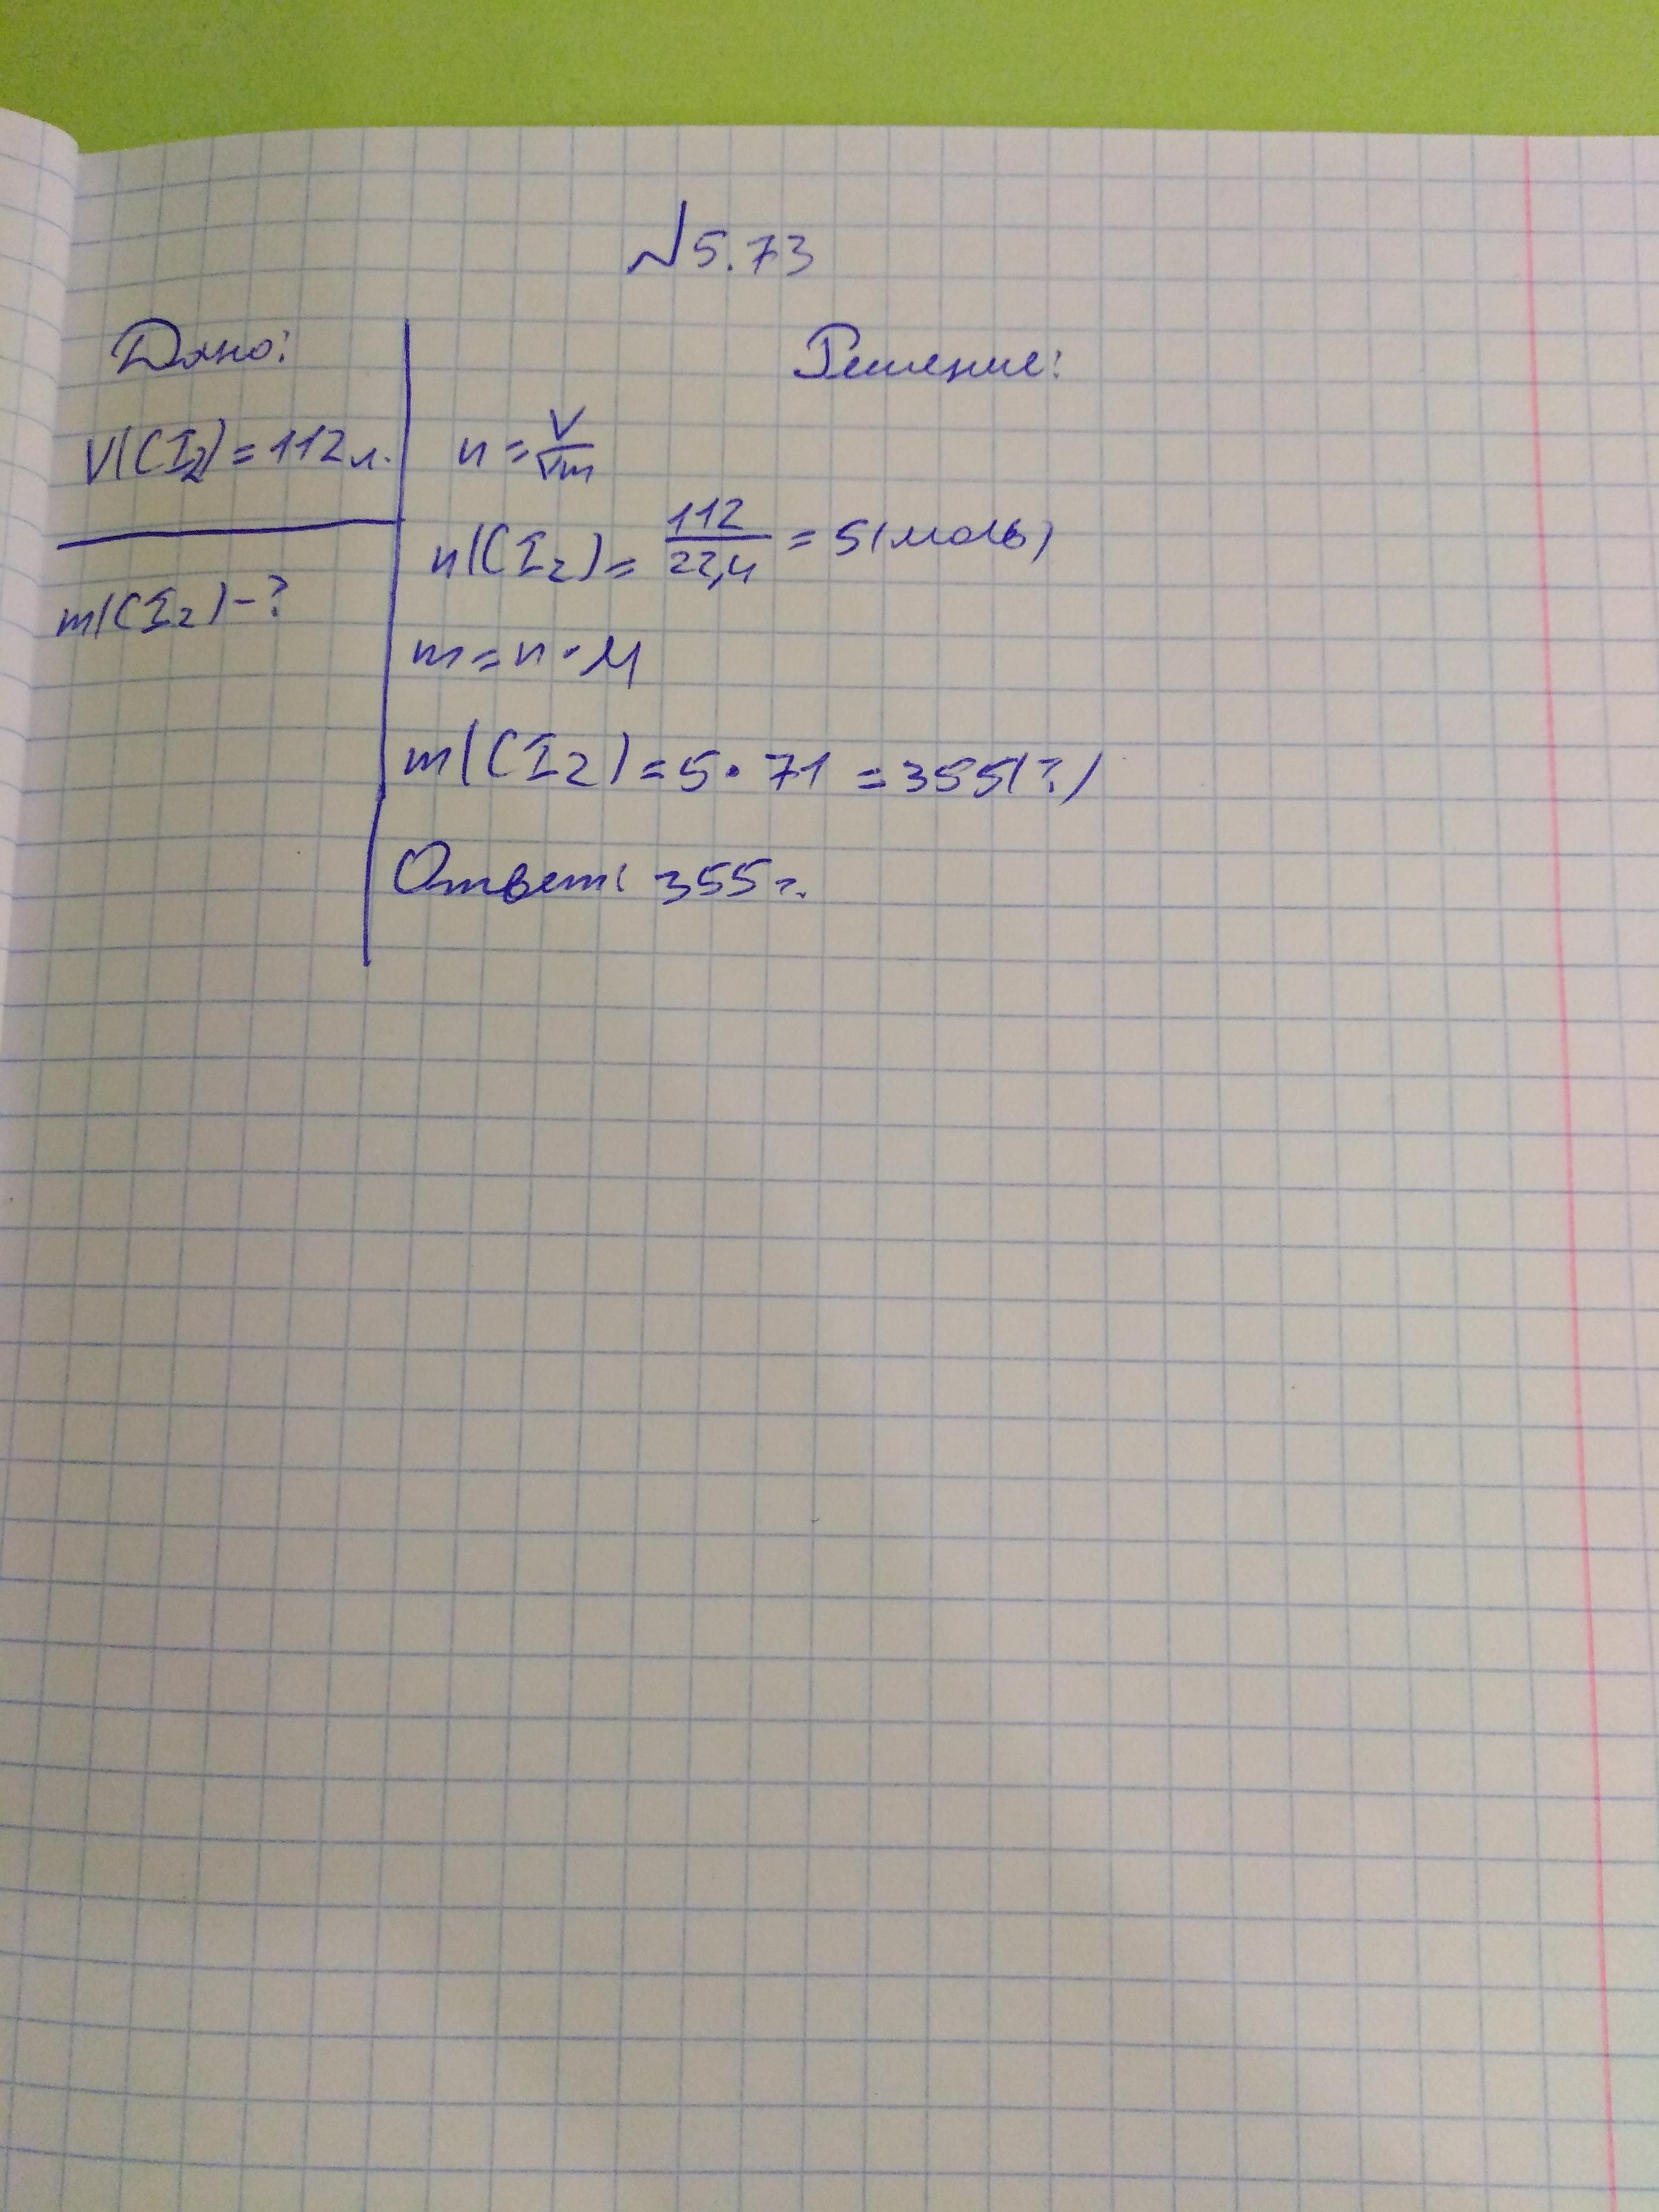 №5.73
Дано:
V(CI2)=112л.
m(CI2)-?
Решение:
n=V/Vm
n(CI2)=112/22,4=5(моль)
m=n·M
m(CI2)=5·71=355(г)
Ответ: 355г.